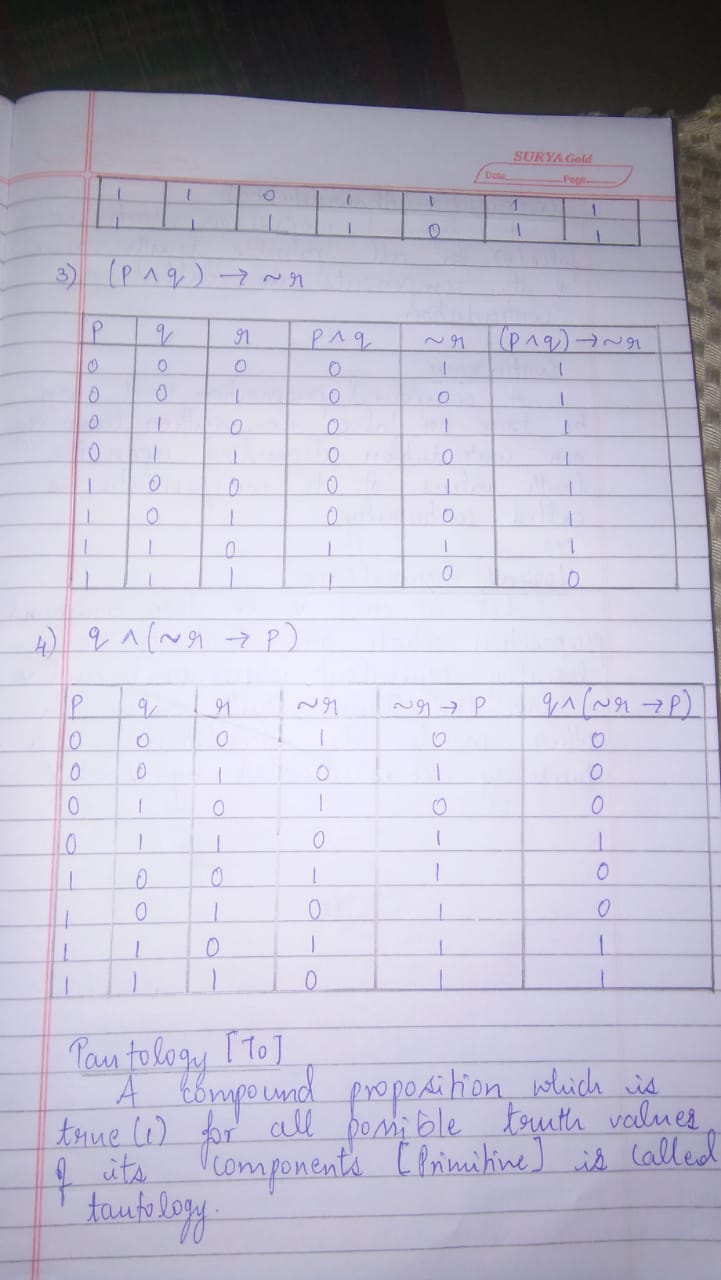 SURYA Gold
Date Page
1 1 0 1 1 1 1
1 1 1 1 0 1 1
3) (p ∧ q) → ~r
p q r p ∧ q ~r (p ∧ q) → ~r
0 0 0 0 1 1
0 0 1 0 0 1
0 1 0 0 1 1
0 1 1 0 0 1
1 0 0 0 1 1
1 0 1 0 0 1
1 1 0 1 1 1
1 1 1 1 0 0
4) q ∧ (~r → p)
p q r ~r ~r → p q ∧ (~r → p)
0 0 0 1 0 0
0 0 1 0 1 0
0 1 0 1 0 0
0 1 1 0 1 1
1 0 0 1 1 0
1 0 1 0 1 0
1 1 0 1 1 1
1 1 1 0 1 1
Tautology [To]
A compound proposition which is
true (1) for all possible truth values
of its components [Primitive] is called
tautology.